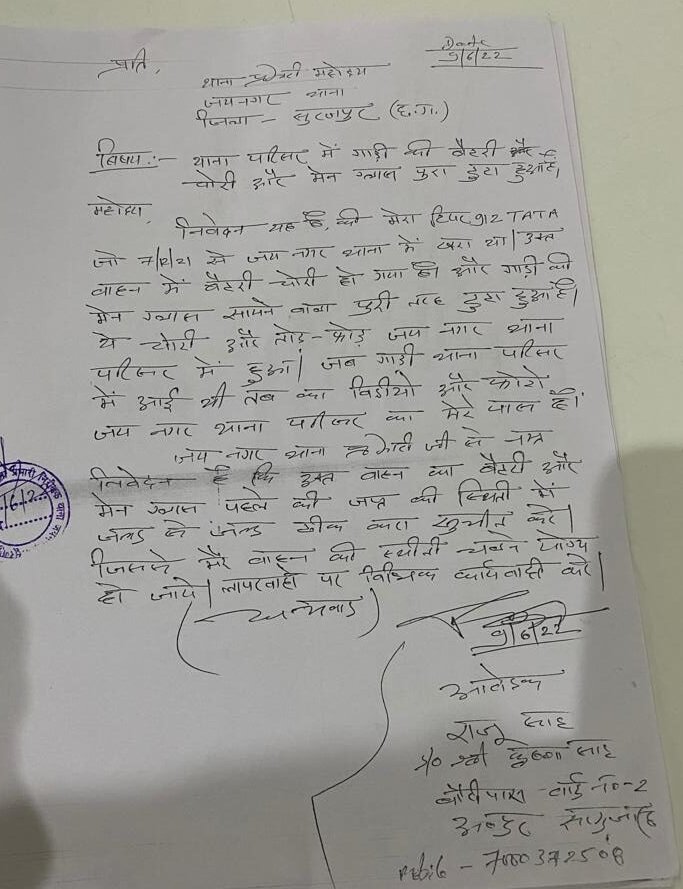 Date
9/6/22
प्रति,
थाना प्रभारी महोदय
जयनगर थाना
जिला - सुरजपुर (छ.ग.)
विषय:- थाना परिसर में गाड़ी की बैटरी
चोरी और मेन ग्लास पुरा टुटा हुआ है।
महोदय,
निवेदन यह है, की मेरा टिपर 912 TATA
जो 7/2/21 से जय नगर थाना में खरा था। उक्त
वाहन में बैटरी चोरी हो गया है। और गाड़ी की
मेन ग्लास सामने वाला पुरी तरह टुटा हुआ है।
ये चोरी और तोड़-फोड़ जय नगर थाना
परिसर में हुआ। जब गाड़ी थाना परिसर
में आई थी तब का विडीयो और फोटो
जय नगर थाना परिसर का मेरे पास है।
जय नगर थाना प्रभारी जी से नम्र
निवेदन है कि उक्त वाहन का बैटरी और
मेन ग्लास पहले की जप्त की स्थिती में
जल्द से जल्द ठीक करा
जिससे मेरे वाहन की स्थीती चलने योग्य
हो जाये। लापरवाही पर कार्यवाही करें।
(धन्यवाद)
9/6/22
आवेदक
राजू साह
S/o श्री साह
वार्ड नं०-2
- 7000372508